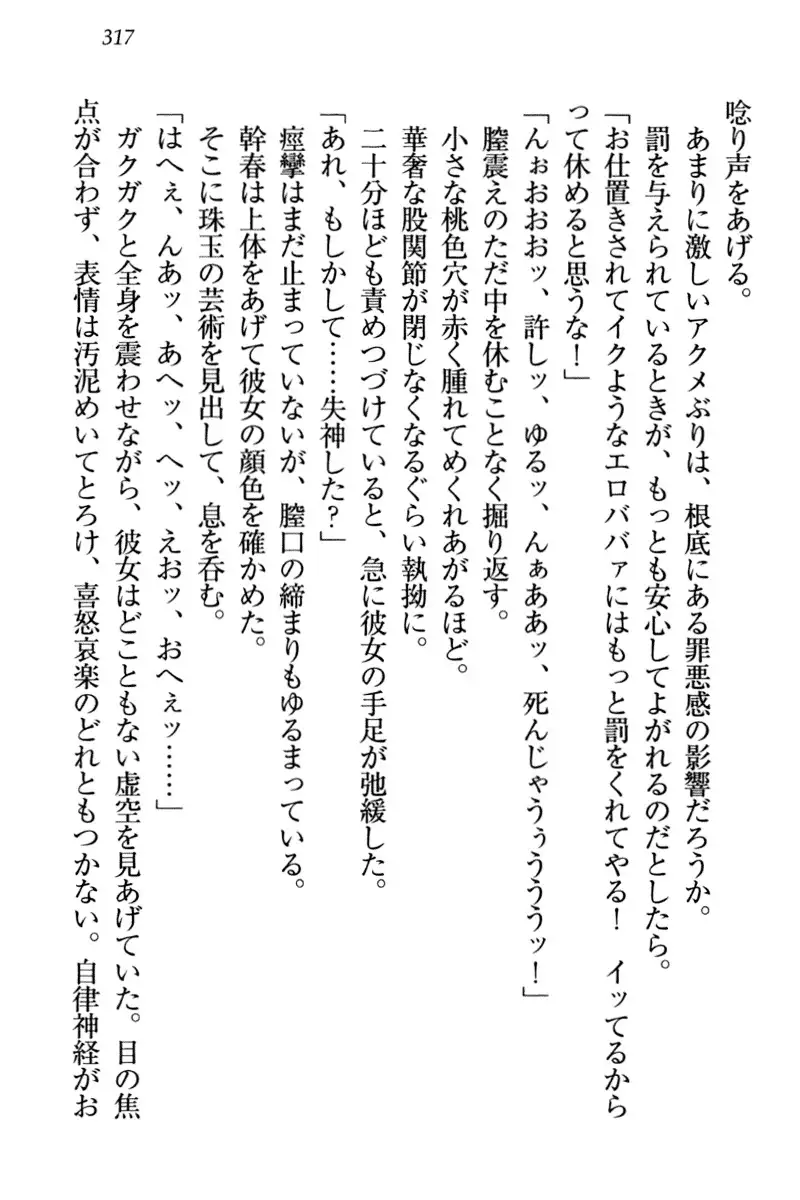 317
唸り声をあげる。
あまりに激しいアクメぶりは、根底にある罪悪感の影響だろうか。
罰を与えられているときが、もっとも安心してよがれるのだとしたら。
「お仕置きされてイクようなエロババァにはもっと罰をくれてやる！　イッてるから
って休めると思うな！」
「んぉおおおッ、許しッ、ゆるッ、んぁああッ、死んじゃうぅううううッ！」
膣震えのただ中を休むことなく掘り返す。
小さな桃色穴が赤く腫れてめくれあがるほど。
華奢な股関節が閉じなくなるぐらい執拗に。
二十分ほども責めつづけていると、急に彼女の手足が弛緩した。
「あれ、もしかして……失神した？」
痙攣はまだ止まっていないが、膣口の締まりもゆるまっている。
幹春は上体をあげて彼女の顔色を確かめた。
そこに珠玉の芸術を見出して、息を呑む。
「はへぇ、んあッ、あへッ、へッ、えおッ、おへぇッ……」
ガクガクと全身を震わせながら、彼女はどこともない虚空を見あげていた。目の焦
点が合わず、表情は汚泥めいてとろけ、喜怒哀楽のどれともつかない。自律神経がお